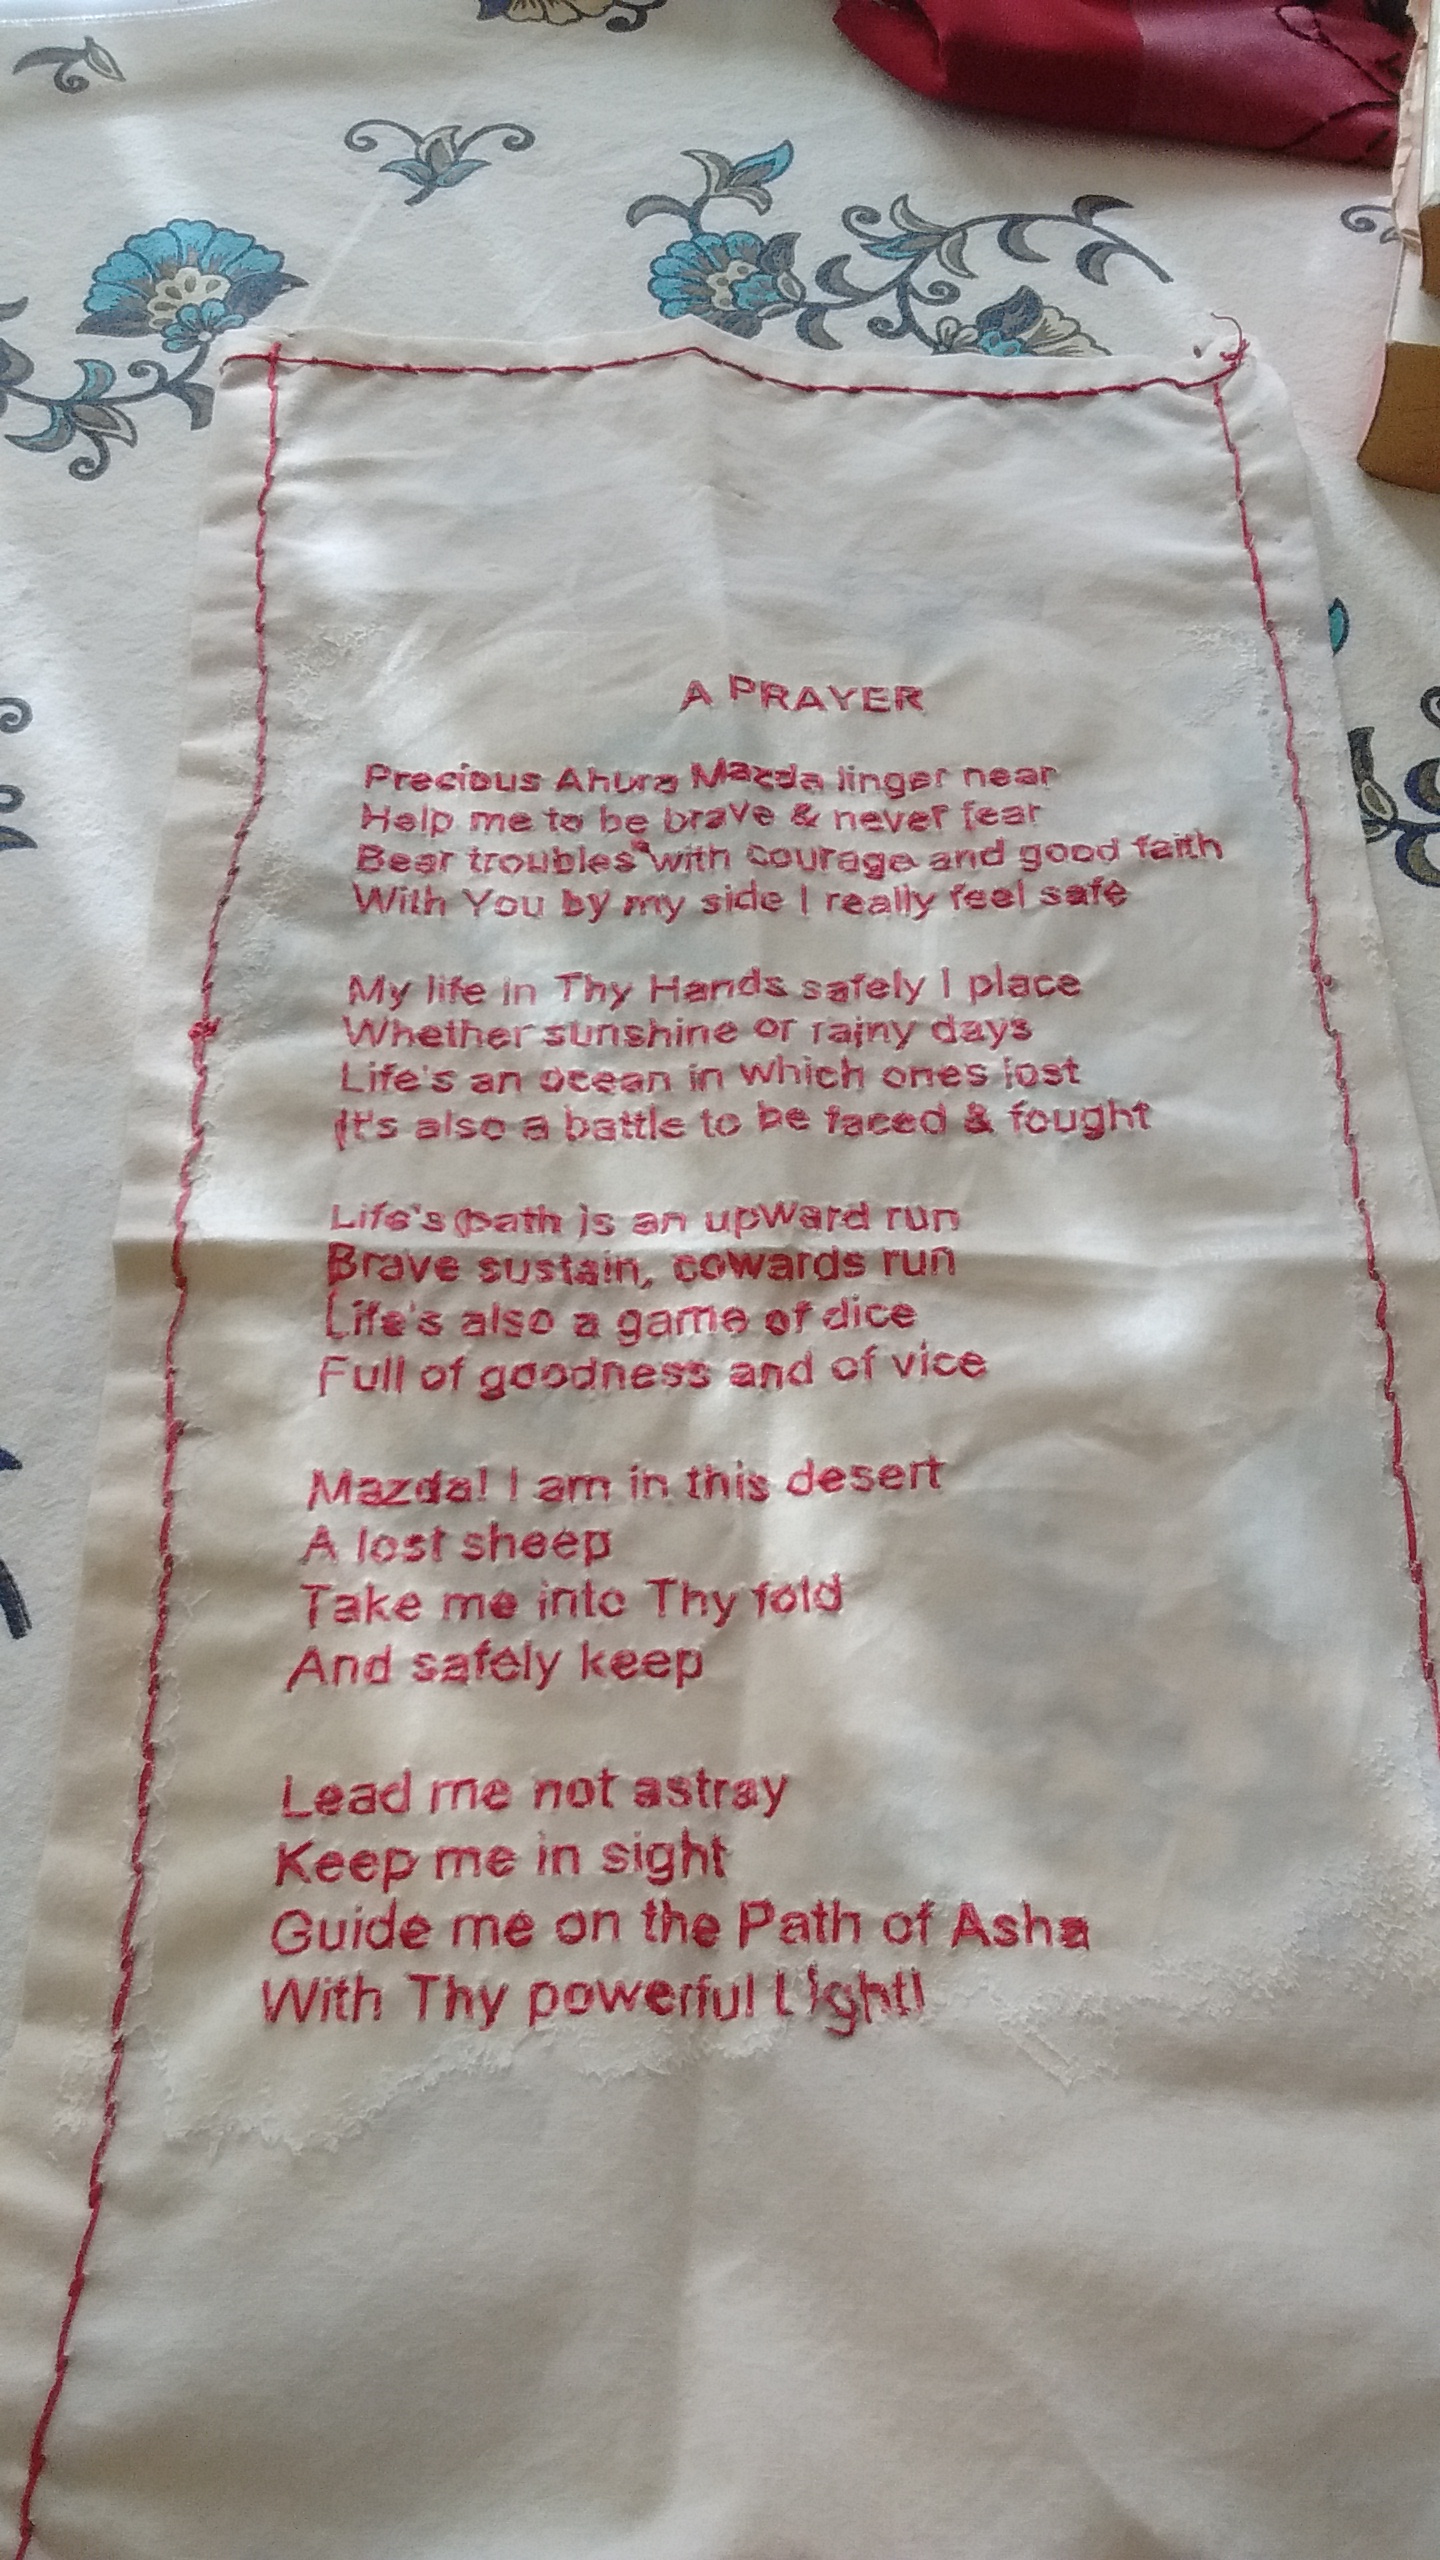 A PRAYER
Precious Ahura Mazda linger near
Help me to be brave & never fear
Bear troubles with courage and good faith
With You by my side I really feel safe
My life in Thy Hands safely I place
Whether sunshine or rainy days
Life's an ocean in which ones lost
It's also a battle to be faced & fought
Life's path is an upward run
Brave sustain, cowards run
Life's also a game of dice
Full of goodness and of vice
Mazda! I am in this desert
A lost sheep
Take me into Thy fold
And safely keep
Lead me not astray
Keep me in sight
Guide me on the Path of Asha
With Thy powerful Light!